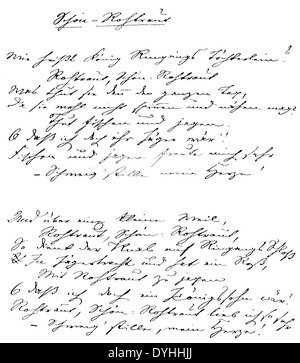 Schön-Rohtraut
Wie heißt König Ringangs Töchterlein?
Rohtraut, Schön-Rohtraut
Was thut sie denn den ganzen Tag,
Da sie wohl nicht spinnen und nähen mag?
Thut fischen und jagen.
O daß ich doch ihr Jäger wär'!
Fischen und jagen freute mich sehr
– Schweig' stille, mein Herze!
Und über eine kleine Weil',
Rohtraut, Schön-Rohtraut,
So dient der Knab auf Ringangs Schloß
In Jägertracht und hat ein Roß,
Mit Rohtraut zu jagen
O daß ich doch ein Königssohn wär!
Rohtraut, Schön-Rohtraut lieb ich so sehr
– Schweig' stille, mein Herze!
DYHHJJ